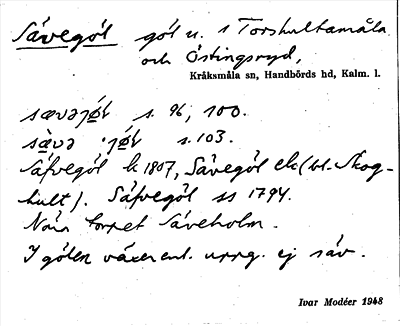 Sävegöl göl u. s Torshultamåla
och Östingsryd,
Kråksmåla sn, Handbörds hd, Kalm. l.
sævəjø̀l s. 96, 100.
sæ̀və ˌjøl s. 103.
Säfvegöl k 1807, Sävegöl ek (bl. Skog-
hult). Säfvegöl ss 1794.
Norr torpet Säveholm.
I gölen växer enl. uppg. ej säv.
Ivar Modéer 1948